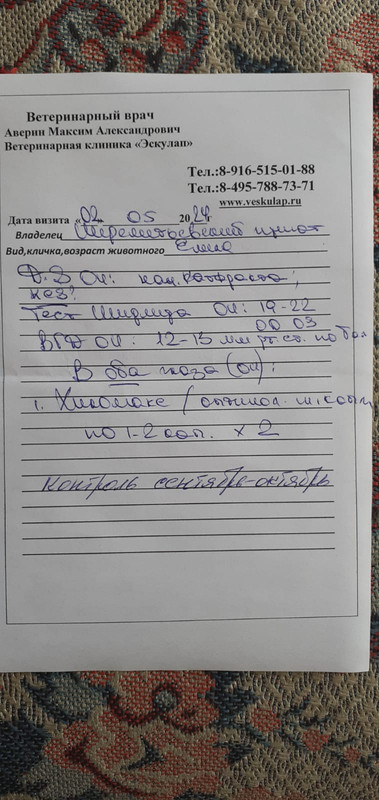 Ветеринарный врач
Аверин Максим Александрович
Ветеринарная клиника «Эскулап»
Тел.:8-916-515-01-88
Тел.:8-495-788-73-71
www.veskulap.ru
Дата визита «02 05 2024г
Владелец Шереметьевский приют
Вид,кличка,возраст животного
Д-З OU: нач. катаракта;
Тест Ширмера OU: 19-22
ВГД OU: 12-13 мм рт. ст.
В оба глаза (OU):
1.
по 1-2 кап. х 2
Контроль сентябрь-октябрь